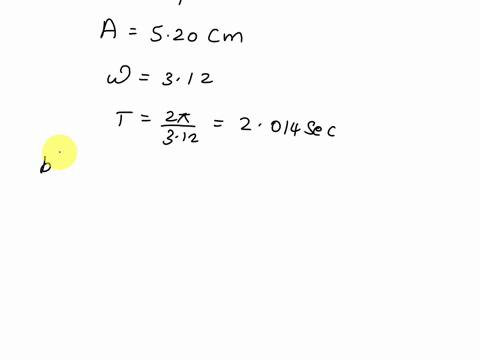 A = 5.20 cm
ω = 3.12
T = 2π/3.12 = 2.014 Sec
b